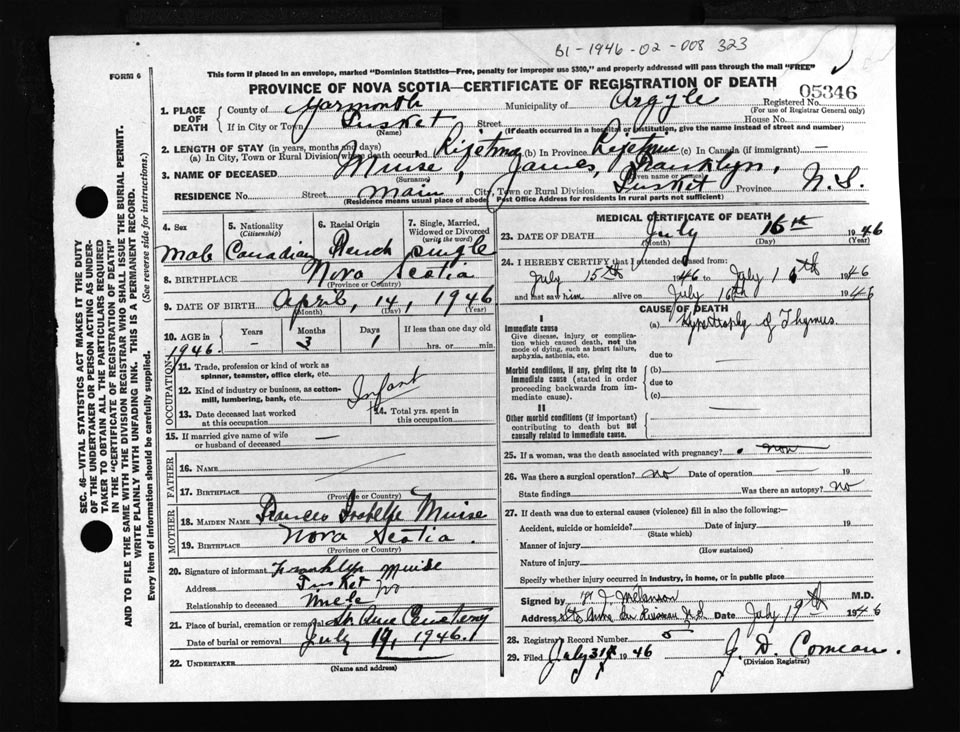 B1-1946-02-008323
FORM 6
This form if placed in an envelope, marked "Dominion Statistics—Free, penalty for improper use $300," and properly addressed will pass through the mail "FREE"
PROVINCE OF NOVA SCOTIA—CERTIFICATE OF REGISTRATION OF DEATH
05346
1. PLACE OF DEATH County of Yarmouth Municipality of Argyle Registered No.
(For use of Registrar General only)
If in City or Town Tusket Street House No.
(Name) (If death occurred in a hospital or institution, give the name instead of street and number)
2. LENGTH OF STAY (in years, months and days)
(a) In City, Town or Rural Division where death occurred Lifetime (b) In Province Lifetime (c) In Canada (if immigrant) —
3. NAME OF DECEASED Muise, James, Franklyn,
(Surname) (Given name or names)
RESIDENCE No. Street Main City, Town or Rural Division Tusket Province N.S.
(Residence means usual place of abode. Post Office Address for residents in rural parts not sufficient)
4. Sex 5. Nationality (Citizenship) 6. Racial Origin 7. Single, Married, Widowed or Divorced (write the word)
Male Canadian French single
8. BIRTHPLACE Nova Scotia
(Province or Country)
9. DATE OF BIRTH April, 14, 1946
(Month) (Day) (Year)
10. AGE in Years Months Days If less than one day old
1946. — 3 1 hrs. or min.
OCCUPATION
11. Trade, profession or kind of work as spinner, teamster, office clerk, etc.
12. Kind of industry or business, as cotton-mill, lumbering, bank, etc.
Infant
13. Date deceased last worked at this occupation
14. Total yrs. spent in this occupation
15. If married give name of wife or husband of deceased —
FATHER
16. NAME —
17. BIRTHPLACE —
(Province or Country)
MOTHER
18. MAIDEN NAME Frances Isabelle Muise
19. BIRTHPLACE Nova Scotia.
(Province or Country)
20. Signature of informant Franklyn Muise
Address Tusket NS
Relationship to deceased Uncle
21. Place of burial, cremation or removal St. Anne Cemetery
Date of burial or removal July 19, 1946.
22. UNDERTAKER
(Name and address)
MEDICAL CERTIFICATE OF DEATH
23. DATE OF DEATH July 16th 1946
(Month) (Day) (Year)
24. I HEREBY CERTIFY that I attended deceased from:
July 15th 1946 to July 16th 1946
and last saw him alive on July 16th 1946
CAUSE OF DEATH
I
Immediate cause (a) Hypertrophy of Thymus.
Give disease, injury or complication which caused death, not the mode of dying, such as heart failure, asphyxia, asthenia, etc.
due to
Morbid conditions, if any, giving rise to immediate cause (stated in order proceeding backwards from immediate cause).
(b)
due to
(c)
II
Other morbid conditions (if important) contributing to death but not causally related to immediate cause.
25. If a woman, was the death associated with pregnancy?
26. Was there a surgical operation? no Date of operation — 19
State findings Was there an autopsy? no
27. If death was due to external causes (violence) fill in also the following:—
Accident, suicide or homicide? Date of injury 19
(State which)
Manner of injury
(How sustained)
Nature of injury
Specify whether injury occurred in industry, in home, or in public place
Signed by Melanson M.D.
Address Date July 19th 1946
28. Registrar's Record Number 5
29. Filed July 31st 1946 J. D. Comeau.
(Division Registrar)
SEC. 46—VITAL STATISTICS ACT MAKES IT THE DUTY
OF THE UNDERTAKER OR PERSON ACTING AS UNDERTAKER TO OBTAIN ALL THE PARTICULARS REQUIRED
IN THE "CERTIFICATE OF REGISTRATION OF DEATH"
AND TO FILE THE SAME WITH THE DIVISION REGISTRAR WHO SHALL ISSUE THE BURIAL PERMIT.
WRITE PLAINLY WITH UNFADING INK. THIS IS A PERMANENT RECORD.
Every item of information should be carefully supplied. (See reverse side for instructions.)